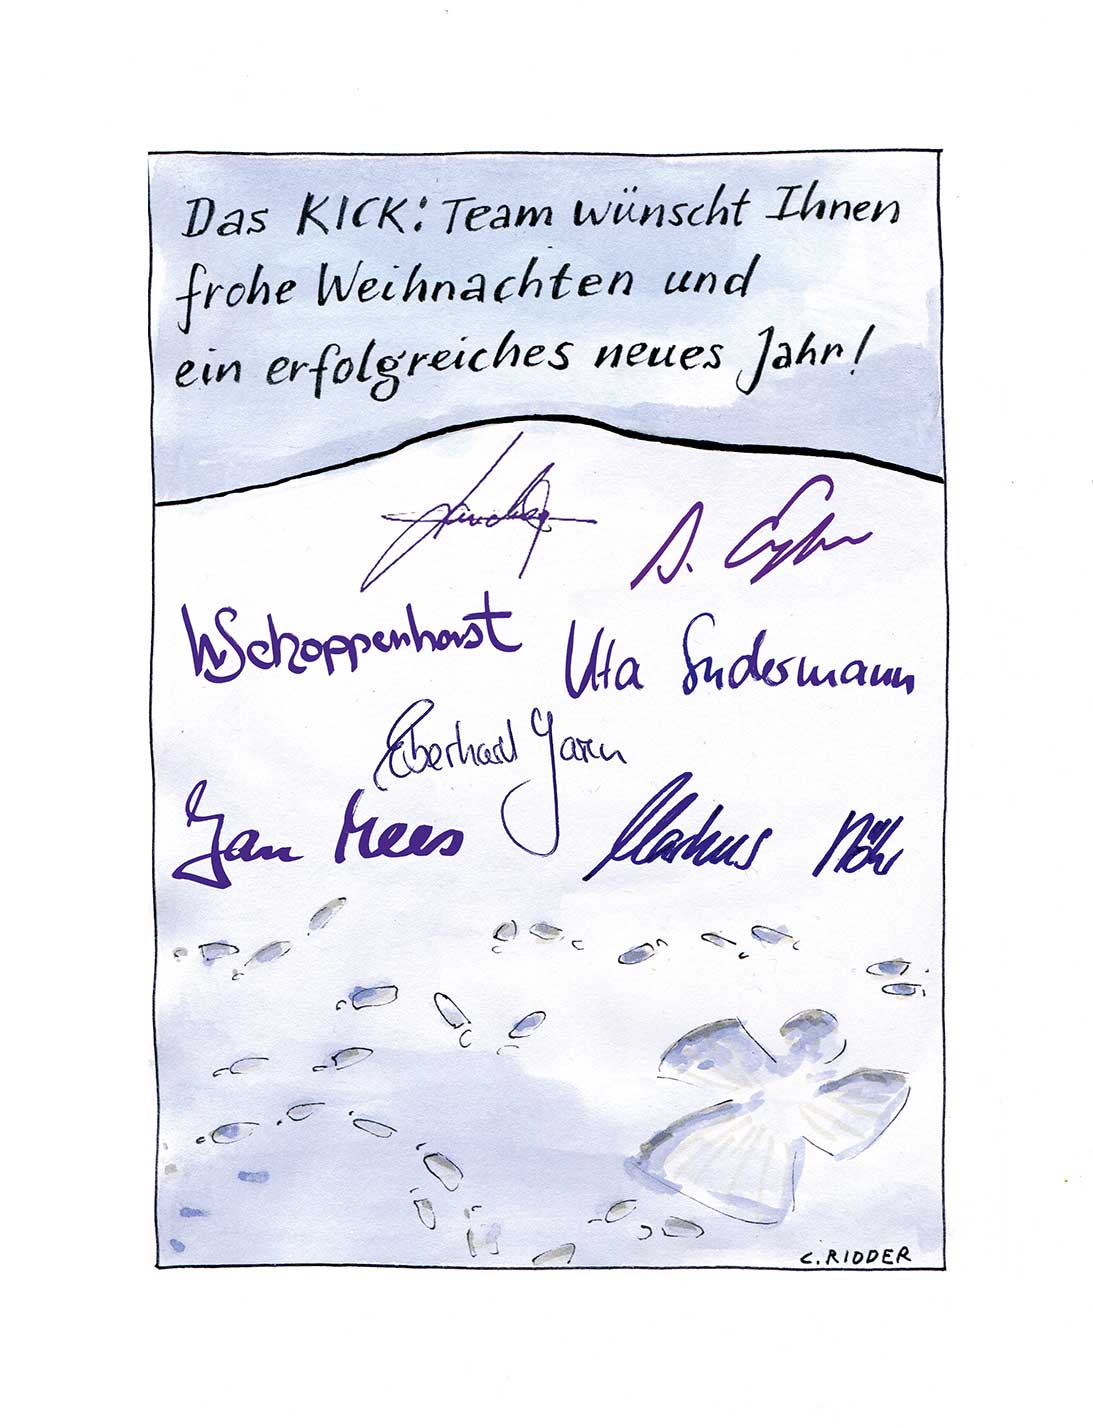 Das KICK: Team wünscht Ihnen
frohe Weihnachten und
ein erfolgreiches neues Jahr!
W Schoppenhorst
Uta Sudermann
Eberhard
Jan Mees
Markus Nöhr
C. RIDDER